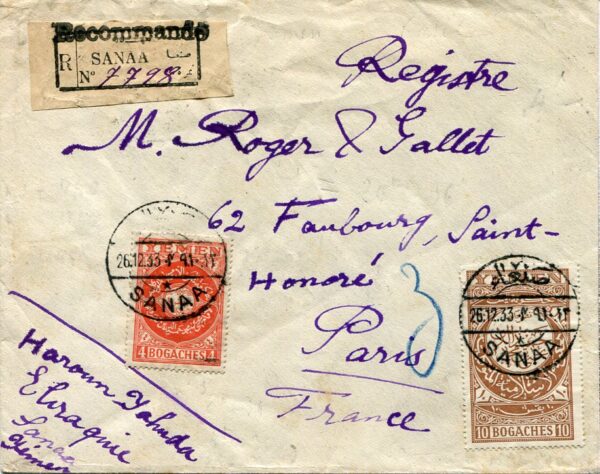 Recommandé
R SANAA صنعا
Nº 7798
Registre
M. Roger & Gallet
62 Faubourg, Saint-
Honoré
Paris
France
3
YEMEN
26.12.33
SANAA
4 BOGACHES 4
صنعاء
26.12.33
SANAA
10 BOGACHES 10
Haroun Yahuda
Eliraquie
Sanaa
Yemen